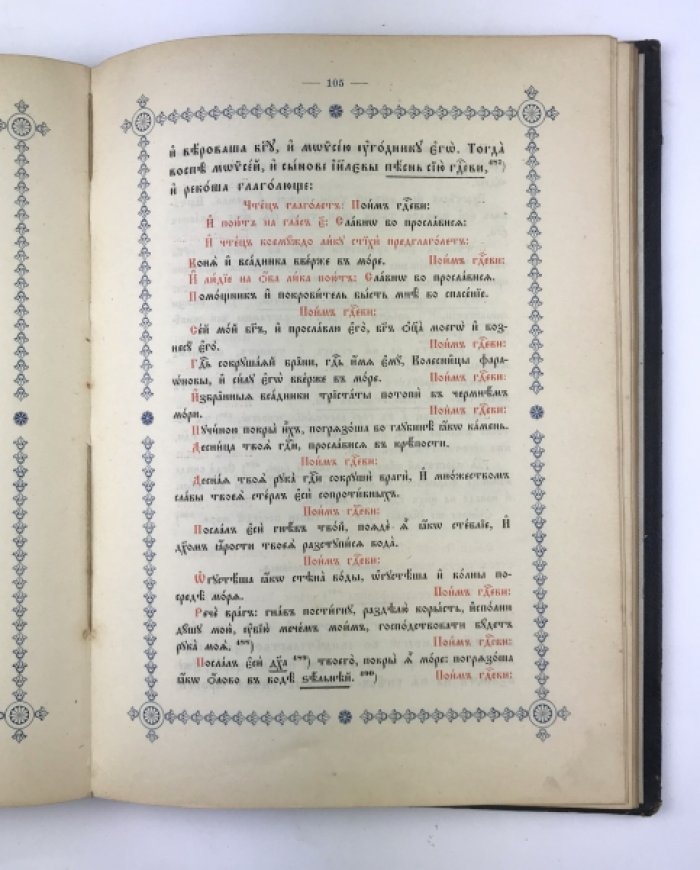 — 105 —
и҆ вѣ́роваша бг҃у, и҆ мѡѷсе́ю ᲂу҆го́днику є҆гѡ̀. Тогда̀
воспѣ̀ мѡѷсе́й, и҆ сы́нове і҆и҃лєвы пѣ́снь сїю̀ гдⷭ҇еви, ⁴⁸⁷)
и҆ реко́ша глаго́люще:
Чте́цъ глаго́летъ: Пои́мъ гдⷭ҇еви:
И҆ пою́тъ на гла́съ є҃: Сла́внѡ во просла́вися:
И҆ чте́цъ коему́ждо ли́ку стїхѝ предглаго́летъ:
Коня̀ и҆ вса́дника вве́рже въ мо́ре. Пои́мъ гдⷭ҇еви:
И҆ лю́дїе на ѻ҆́ба ли́ка пою́тъ: Сла́внѡ во просла́вися.
Помо́щникъ и҆ покрови́тель бы́сть мнѣ̀ во спасе́нїе.
Пои́мъ гдⷭ҇еви:
Се́й мо́й бг҃ъ, и҆ просла́влю є҆го̀, бг҃ъ ѻ҆ц҃а̀ моегѡ̀ и҆ воз-
несу̀ є҆го̀. Пои́мъ гдⷭ҇еви:
Гдⷭ҇ь сокруша́яй бра́ни, гдⷭ҇ь и҆́мя є҆мꙋ̀, Колесни́цы фара-
ѡ́новы, и҆ си́лу є҆гѡ̀ вве́рже въ мо́ре. Пои́мъ гдⷭ҇еви:
И҆збра́нныя вса́дники трїста́ты потопѝ въ чермнѣ́мъ
мо́ри. Пои́мъ гдⷭ҇еви:
Пучи́ною покры̀ и҆̀хъ, погрязо́ша во глубинѣ̀ ꙗ҆́кѡ ка́мень.
Десни́ца твоя̀ гдⷭ҇и, просла́вися въ крѣ́пости.
Пои́мъ гдⷭ҇еви:
Десна́я твоя̀ рука̀ гдⷭ҇и сокрушѝ врагѝ, И҆ мно́жествомъ
сла́вы твоея̀ сте́рлъ є҆сѝ сопроти́вныхъ.
Пои́мъ гдⷭ҇еви:
Посла́лъ є҆сѝ гнѣ́въ тво́й, поядѐ ѧ҆̀ ꙗ҆́кѡ сте́блїе, И҆
дх҃омъ ꙗ҆́рости твоея̀ разступи́ся вода̀.
Пои́мъ гдⷭ҇еви:
Ѡ҆густѣ́ша ꙗ҆́кѡ стѣна̀ во́ды, ѡ҆густѣ́ша и҆ во́лны по-
средѣ̀ мо́ря. Пои́мъ гдⷭ҇еви:
Речѐ вра́гъ: гна́въ пости́гну, раздѣлю̀ коры́сть, и҆спо́лню
ду́шу мою̀, ᲂу҆бїю̀ мече́мъ мои́мъ, госпо́дствовати бу́детъ
рука̀ моя̀. ⁴⁸⁸) Пои́мъ гдⷭ҇еви:
Посла́лъ є҆сѝ дх҃а ⁴⁸⁹) твоего̀, покры̀ ѧ҆̀ мо́ре: погрязо́ша
ꙗ҆́кѡ ѻ҆́лово въ водѣ̀ ѕѣ́льнѣй. ⁴⁹⁰) Пои́мъ гдⷭ҇еви: